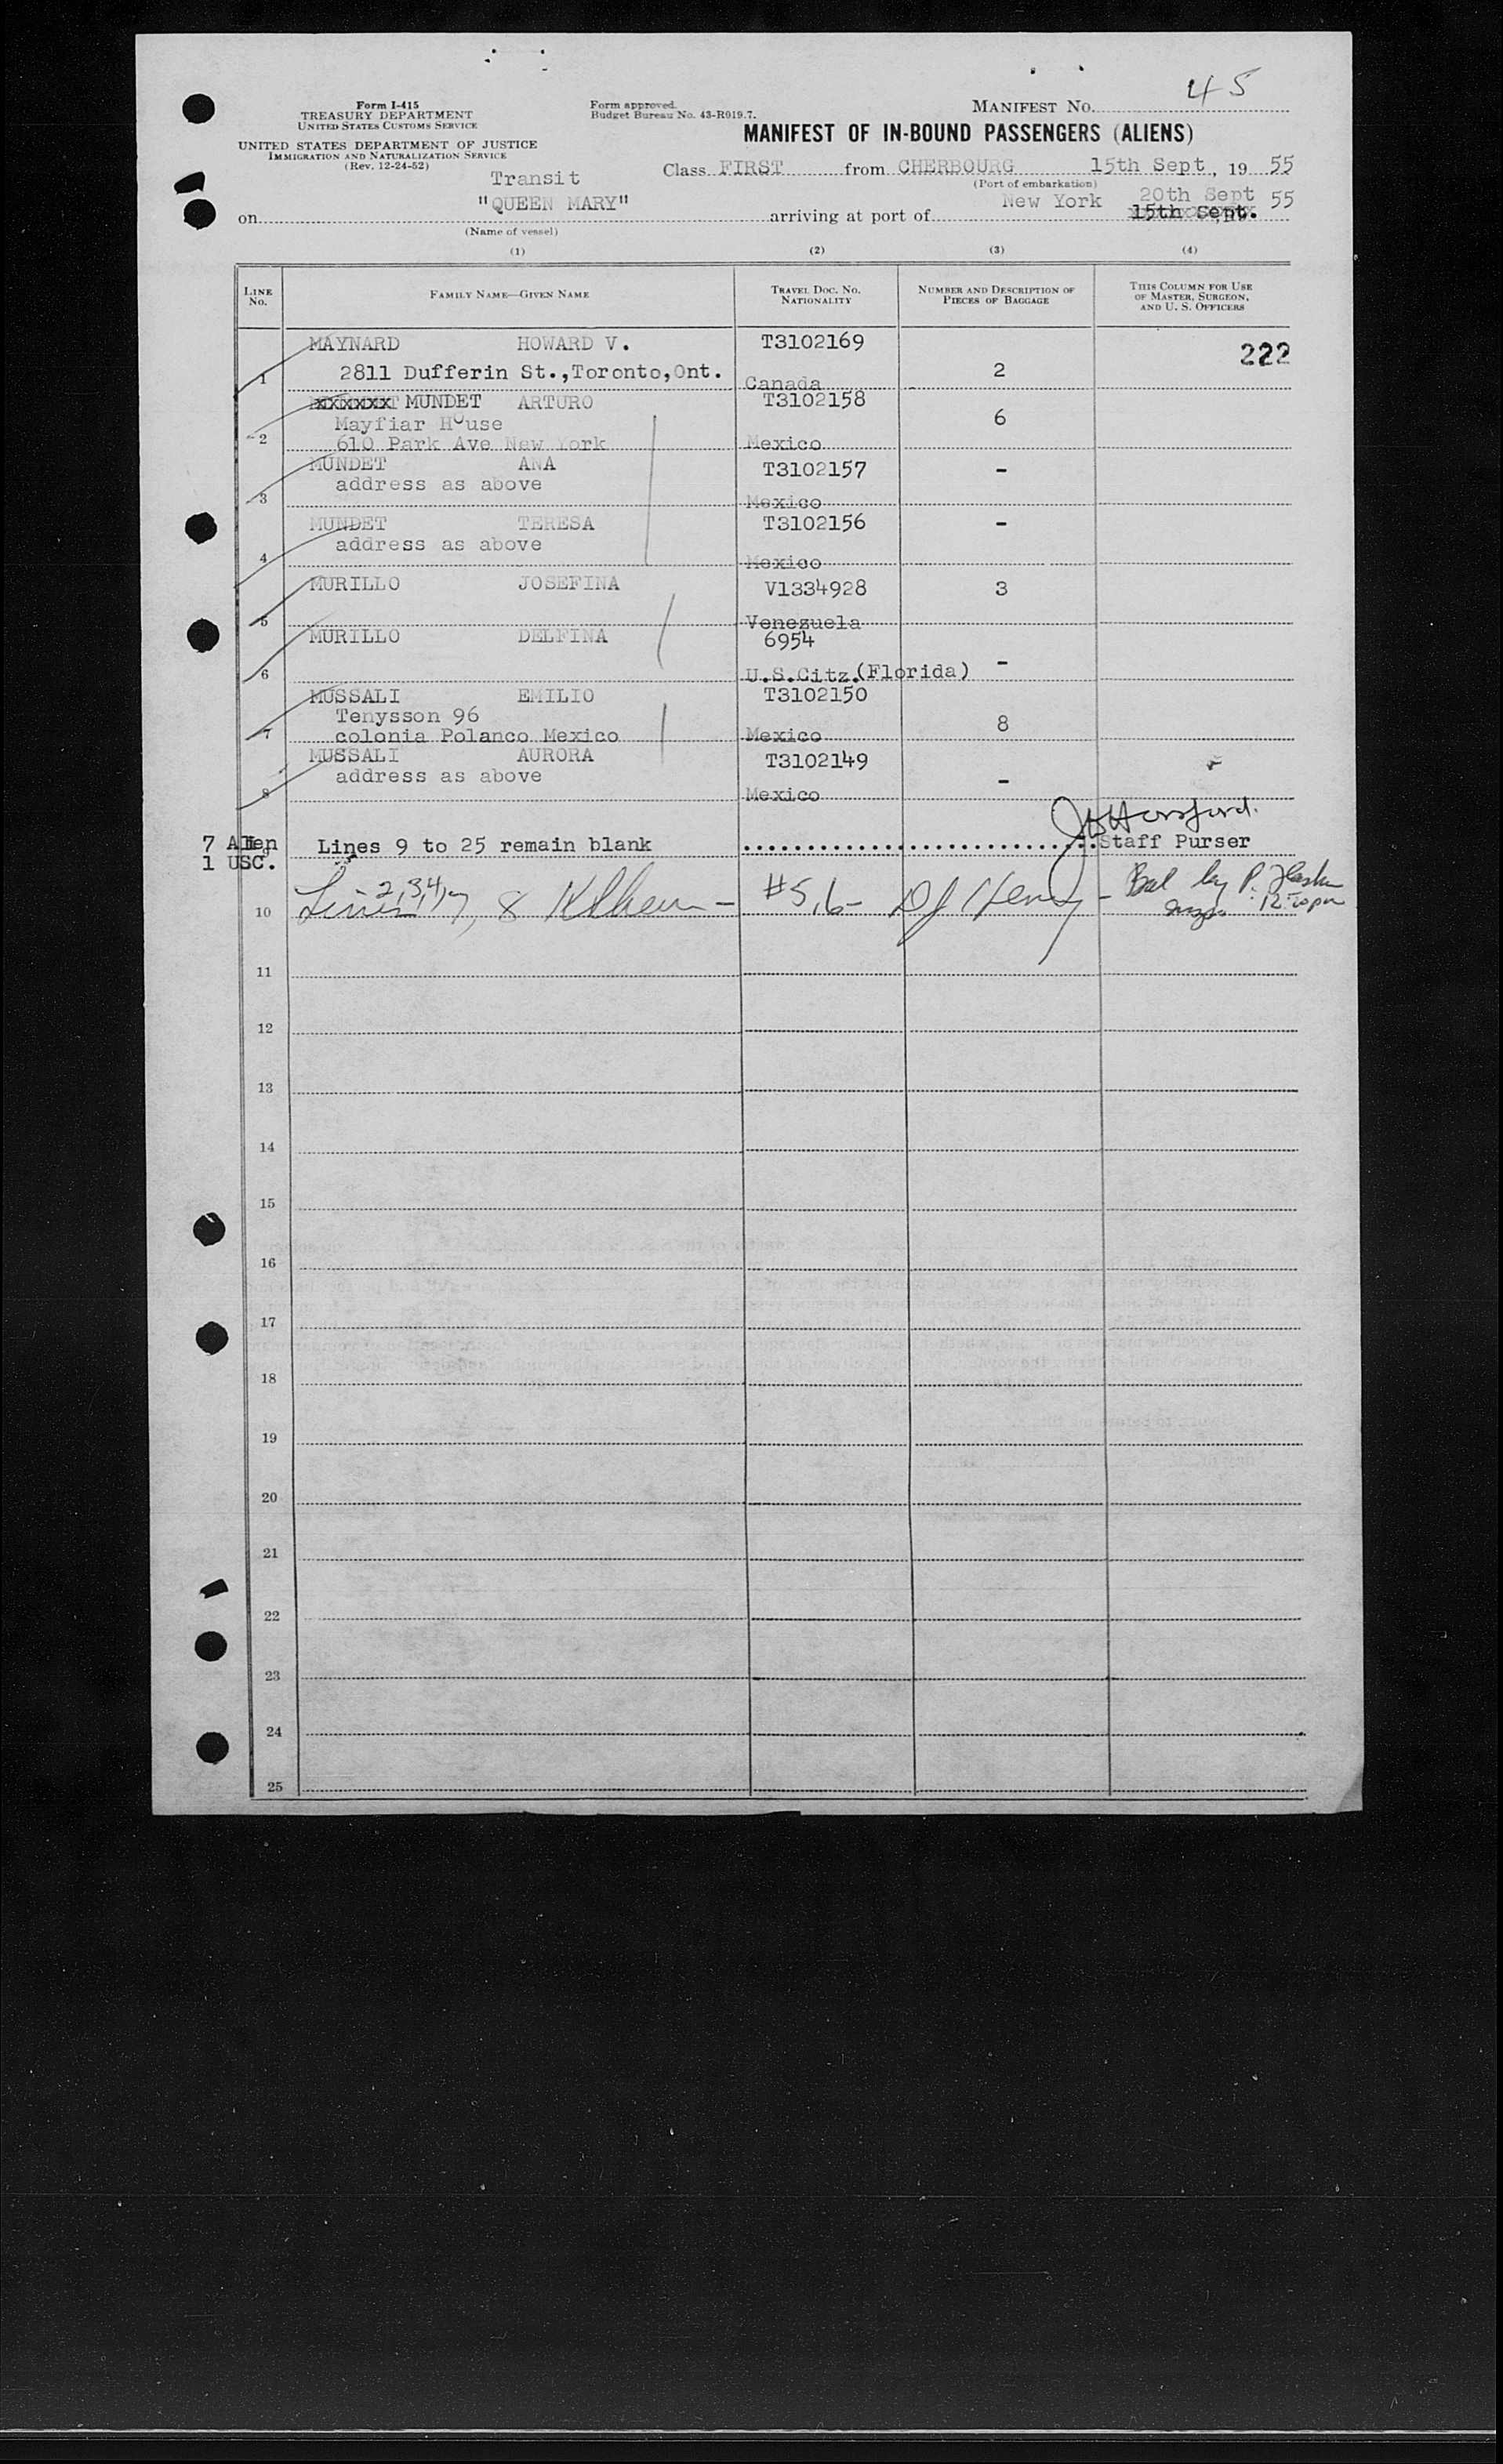 Form I-415
TREASURY DEPARTMENT
UNITED STATES CUSTOMS SERVICE
UNITED STATES DEPARTMENT OF JUSTICE
IMMIGRATION AND NATURALIZATION SERVICE
(Rev. 12-24-52)
Form approved.
Budget Bureau No. 43-R019.7.
MANIFEST NO. 45
MANIFEST OF IN-BOUND PASSENGERS (ALIENS)
Class FIRST from CHERBOURG 15th Sept, 19 55
(Port of embarkation)
Transit
on "QUEEN MARY" arriving at port of New York 20th Sept 55
15th Sept.
(Name of vessel)
(1) (2) (3) (4)
LINE NO. FAMILY NAME—GIVEN NAME TRAVEL DOC. NO. NATIONALITY NUMBER AND DESCRIPTION OF PIECES OF BAGGAGE THIS COLUMN FOR USE OF MASTER, SURGEON, AND U. S. OFFICERS
MAYNARD HOWARD V. T3102169 222
1 2811 Dufferin St.,Toronto,Ont. Canada 2
xxxxxxx MUNDET ARTURO T3102158
Mayfiar House 6
2 610 Park Ave New York Mexico
MUNDET ANA T3102157 -
address as above
3 Mexico
MUNDET TERESA T3102156 -
address as above
4 Mexico
MURILLO JOSEFINA V1334928 3
5 Venezuela
MURILLO DELFINA 6954
6 U.S.Citz.(Florida) -
MUSSALI EMILIO T3102150
Tenysson 96 8
7 colonia Polanco Mexico Mexico
MUSSALI AURORA T3102149
address as above -
8 Mexico
J Horsford.
7 Alien Lines 9 to 25 remain blank Staff Purser
1 USC.
10 Lines 2,3,4,7, 8 - #5,6- - Bal by P.
11
12
13
14
15
16
17
18
19
20
21
22
23
24
25